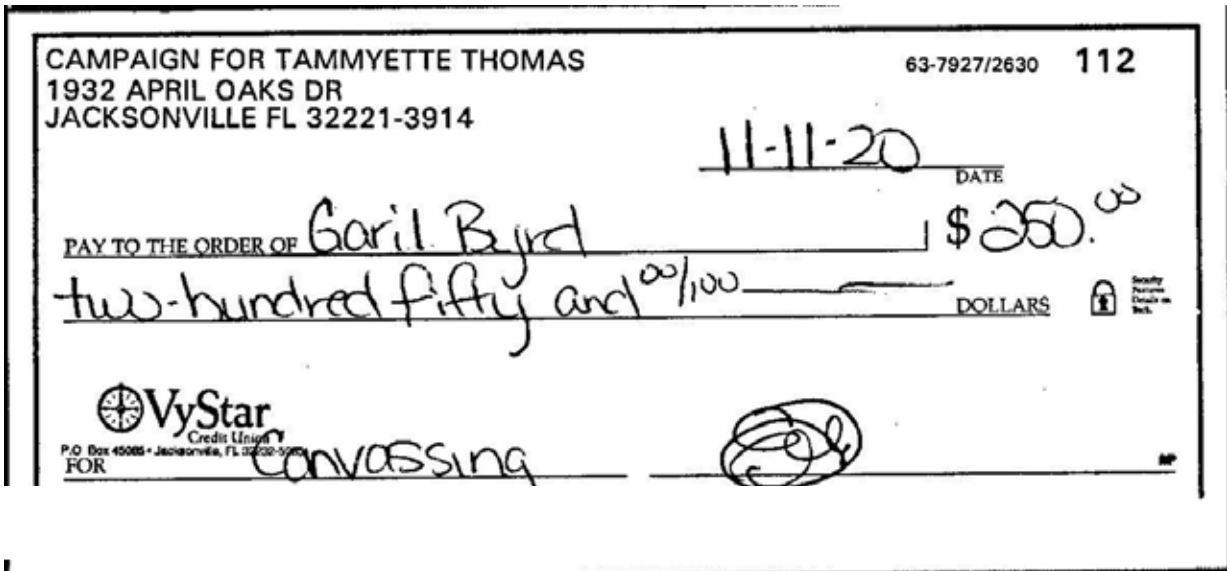 CAMPAIGN FOR TAMMYETTE THOMAS
63-7927/2630 112
1932 APRIL OAKS DR
JACKSONVILLE FL 32221-3914
11-11-20
DATE
PAY TO THE ORDER OF Garil Byrd $ 250.00
two-hundred fifty and 00/100 DOLLARS
Security
Features
Details on
Back.
VyStar
Credit Union
P.O. Box 45085 • Jacksonville, FL 32232-5085
FOR Canvassing
MP